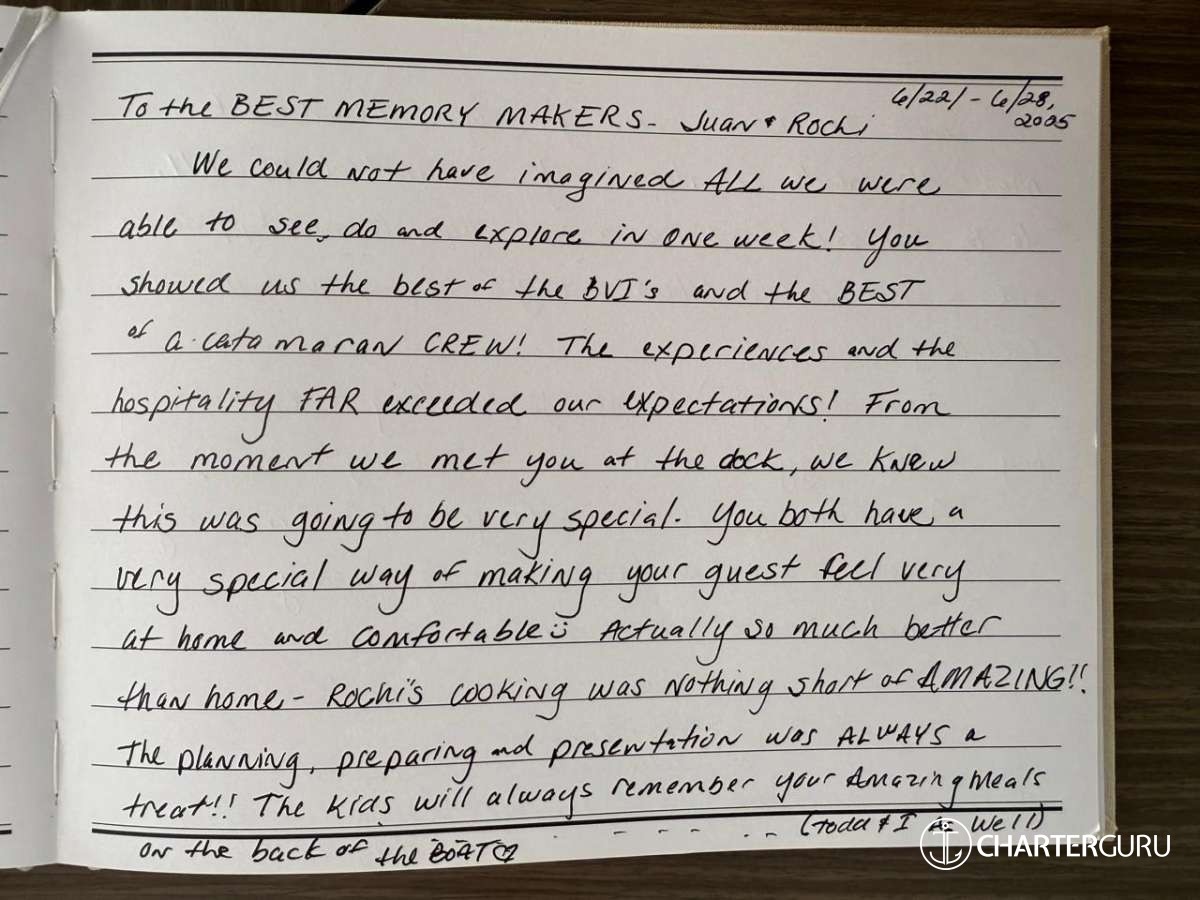 6/22/ - 6/28,
2025
To the BEST MEMORY MAKERS - Juan & Rochi
We could not have imagined ALL we were
able to see, do and explore in one week! You
showed us the best of the BVI's and the BEST
of a catamaran CREW! The experiences and the
hospitality FAR exceeded our expectations! From
the moment we met you at the dock, we knew
this was going to be very special. You both have a
very special way of making your guest feel very
at home and comfortable Actually so much better
than home - Rochi's cooking was nothing short of AMAZING!!
The planning, preparing and presentation was ALWAYS a
treat!! The kids will always remember your Amazing Meals
(Todd & I as well)
on the back of the BOAT♡
CHARTERGURU